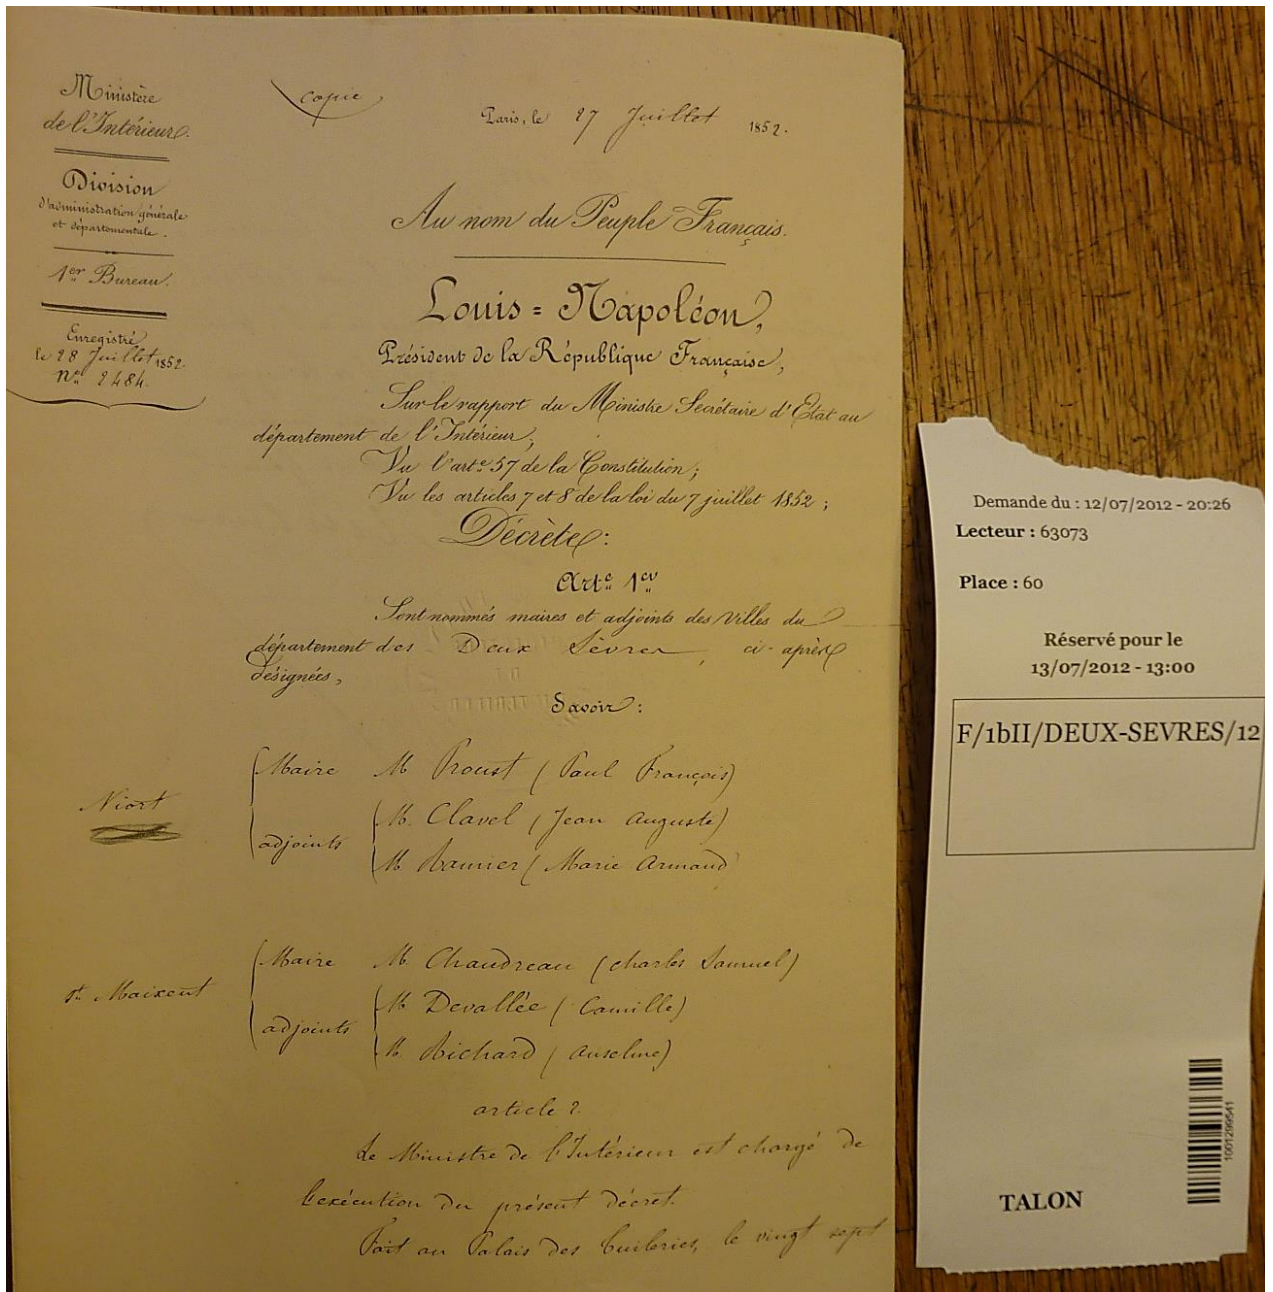 Ministère
de l'Intérieur.
Division
d'administration générale
et départementale.
1er Bureau.
Enregistré
le 28 Juillet 1852.
No. 2484.
Copie
Paris, le 27 Juillet 1852.
Au nom du Peuple Français.
Louis=Napoléon,
Président de la République Française,
Sur le rapport du Ministre Secrétaire d'État au
département de l'Intérieur,
Vu l'arte 57 de la Constitution;
Vu les articles 7 et 8 de la loi du 7 juillet 1852;
Décrète:
Arte 1er
Sont nommés maires et adjoints des Villes du
département des Deux Sèvres, ci-après
désignées,
Savoir:
Niort
Maire M Proust (Paul François)
adjoints
M. Clavel (Jean Auguste)
M (Marie Armand
St Maixent
Maire M. Chaudreau (Charles Samuel)
adjoints
M Devallée (Camille)
M. Richard (Anselme)
article 2.
Le Ministre de l'Intérieur est chargé de
l'exécution du présent décret.
Fait au Palais des Tuileries, le vingt sept
Demande du : 12/07/2012 - 20:26
Lecteur : 63073
Place : 60
Réservé pour le
13/07/2012 - 13:00
F/1bII/DEUX-SEVRES/12
TALON